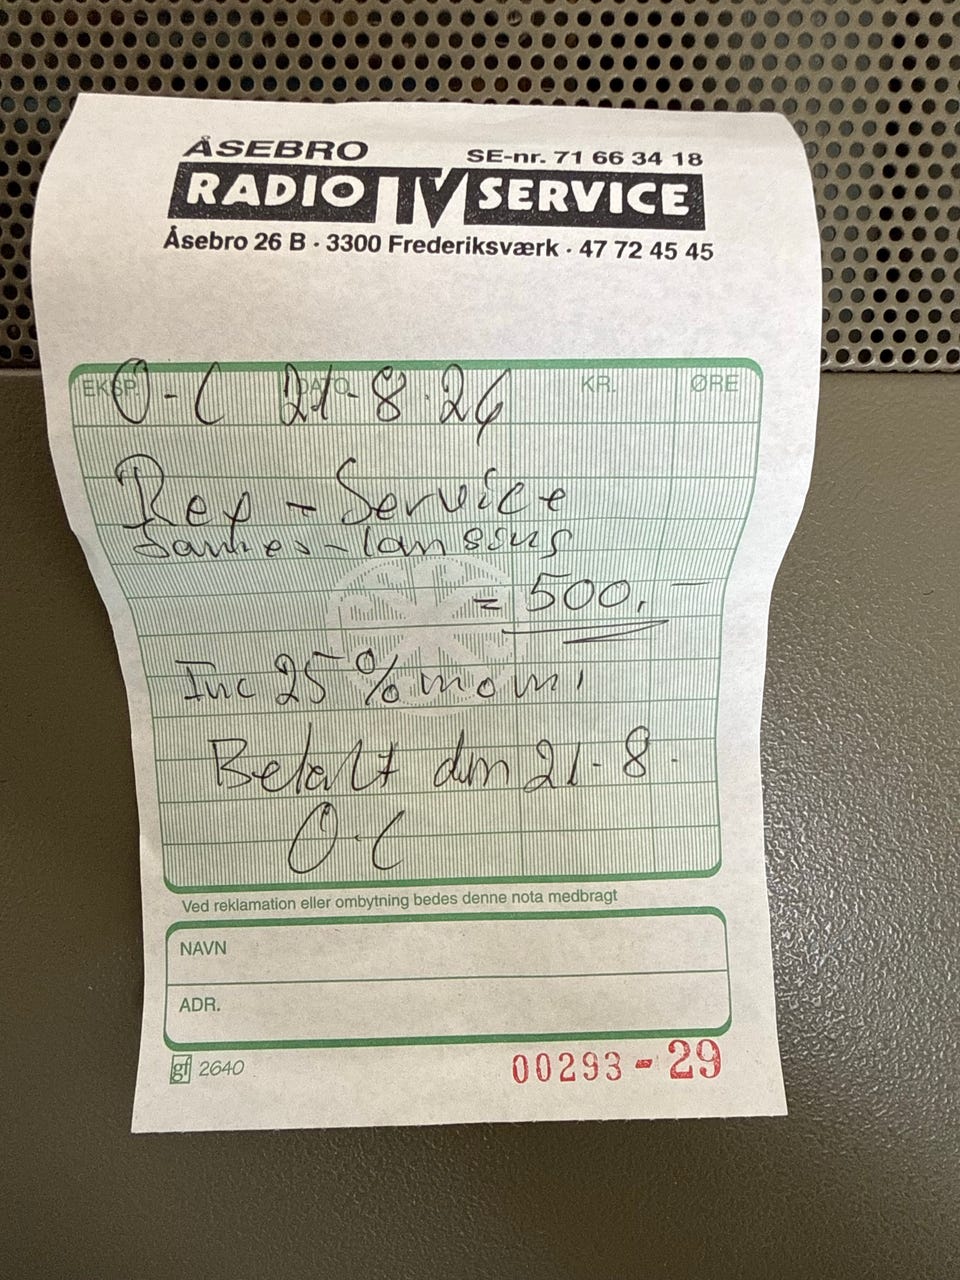 ÅSEBRO SE-nr. 71 66 34 18
RADIO TV SERVICE
Åsebro 26 B · 3300 Frederiksværk · 47 72 45 45
EKSP. DATO KR. ØRE
O-C 21-8.24
Rep - Service
= 500,-
Inc 25% moms
Betalt den 21-8.
O-C
Ved reklamation eller ombytning bedes denne nota medbragt
NAVN
ADR.
gf 2640 00293-29